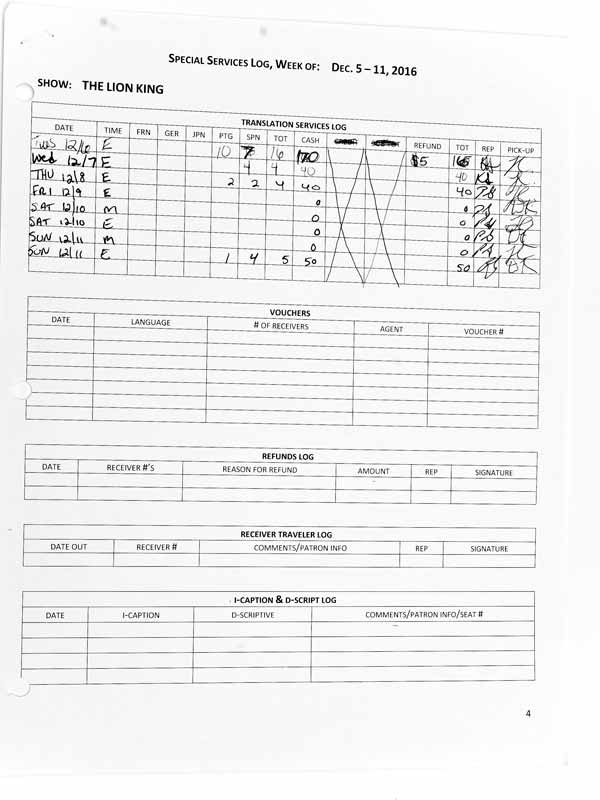 SPECIAL SERVICES LOG, WEEK OF: DEC. 5 – 11, 2016
SHOW: THE LION KING
TRANSLATION SERVICES LOG
DATE TIME FRN GER JPN PTG SPN TOT CASH REFUND TOT REP PICK-UP
Tues 12/6 E 10 7 16 170 $5 165
Wed 12/7 E 4 4 40 40
THU 12/8 E 2 2 4 40 40 PS
FRI 12/9 E 0 0 PS
SAT 12/10 M 0 0 PS
SAT 12/10 E 0 0 PS
SUN 12/11 M 0 0 PS
SUN 12/11 E 1 4 5 50 50
VOUCHERS
DATE LANGUAGE # OF RECEIVERS AGENT VOUCHER #
REFUNDS LOG
DATE RECEIVER #'S REASON FOR REFUND AMOUNT REP SIGNATURE
RECEIVER TRAVELER LOG
DATE OUT RECEIVER # COMMENTS/PATRON INFO REP SIGNATURE
I-CAPTION & D-SCRIPT LOG
DATE I-CAPTION D-SCRIPTIVE COMMENTS/PATRON INFO/SEAT #
4